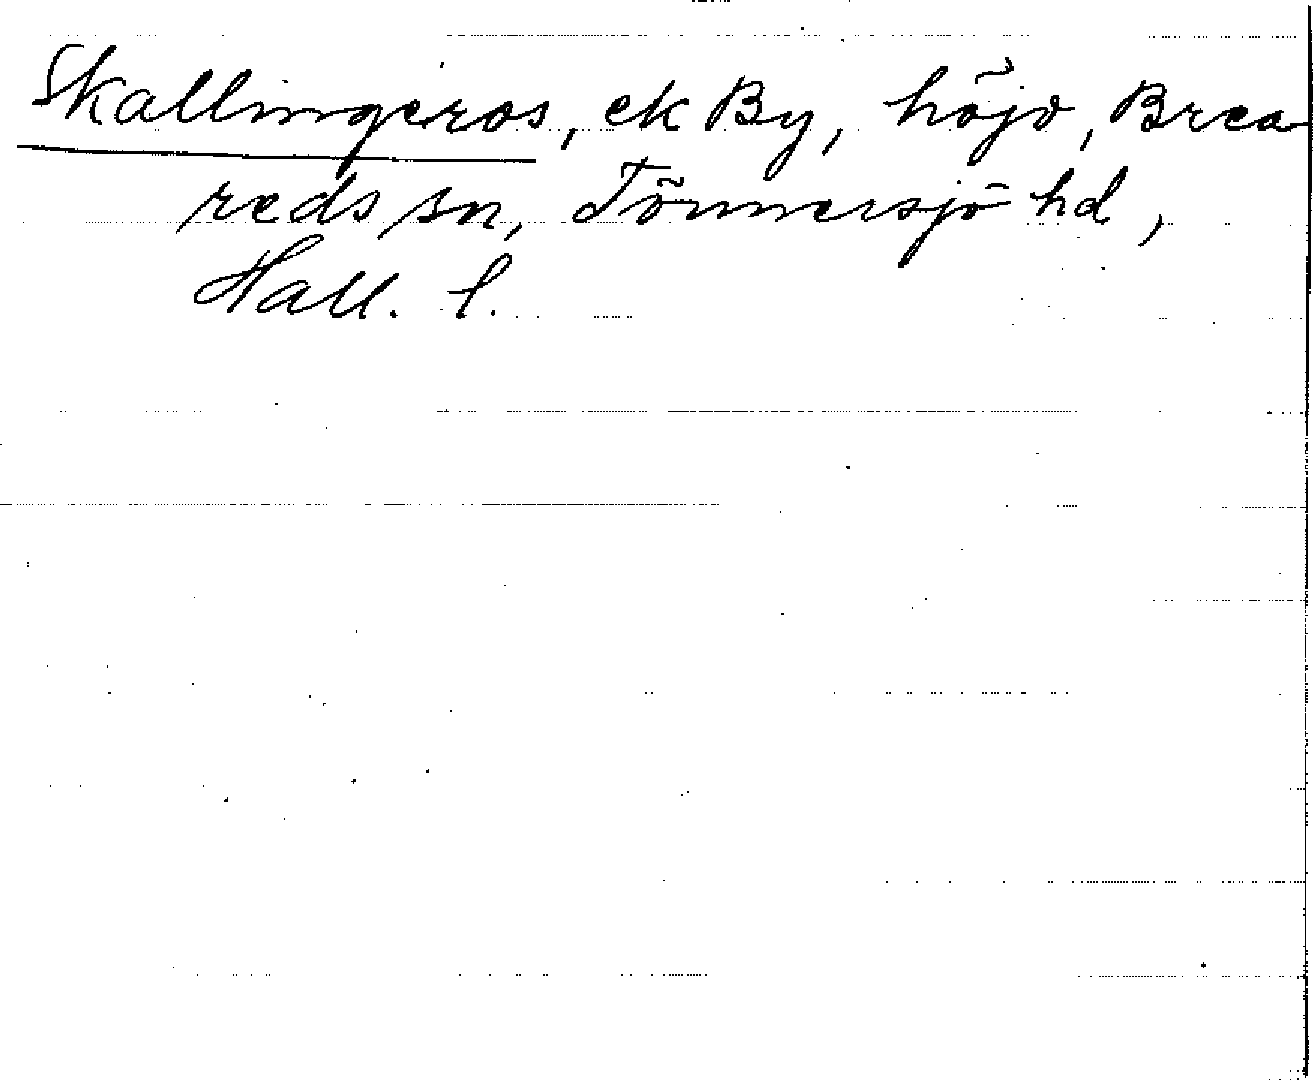 Skallingeros, ek By, höjd, Brea
reds sn, Tönnersjö hd,
Hall. l.